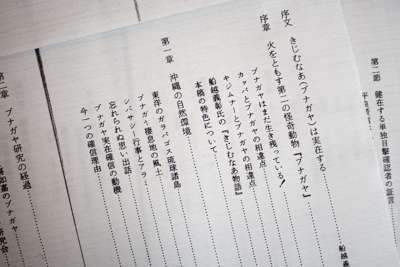 第二節　健在する単独目撃確認者の証言
平良
序文　きじむなあ(ブナガヤ)は実在する……
船越義
序章　火をともす第二の怪奇動物『ブナガヤ』……
ブナガヤはまだ生き残っている!……
カッパとブナガヤの相違点……
キジムナーとブナガヤの相違点……
船越義彰氏の『きじむなあ物語』……
本稿の特色について……
第一章　沖縄の自然環境……
東洋のガラパゴス琉球諸島……
ブナガヤ棲息地の風土……
シバサシー行事とブラミ……
忘れられぬ思い出話……
ブナガヤ実在確信の動機……
今一つの確信理由……
第二章　ブナガヤ研究の経過……
如嘉のブナガヤ
研究会